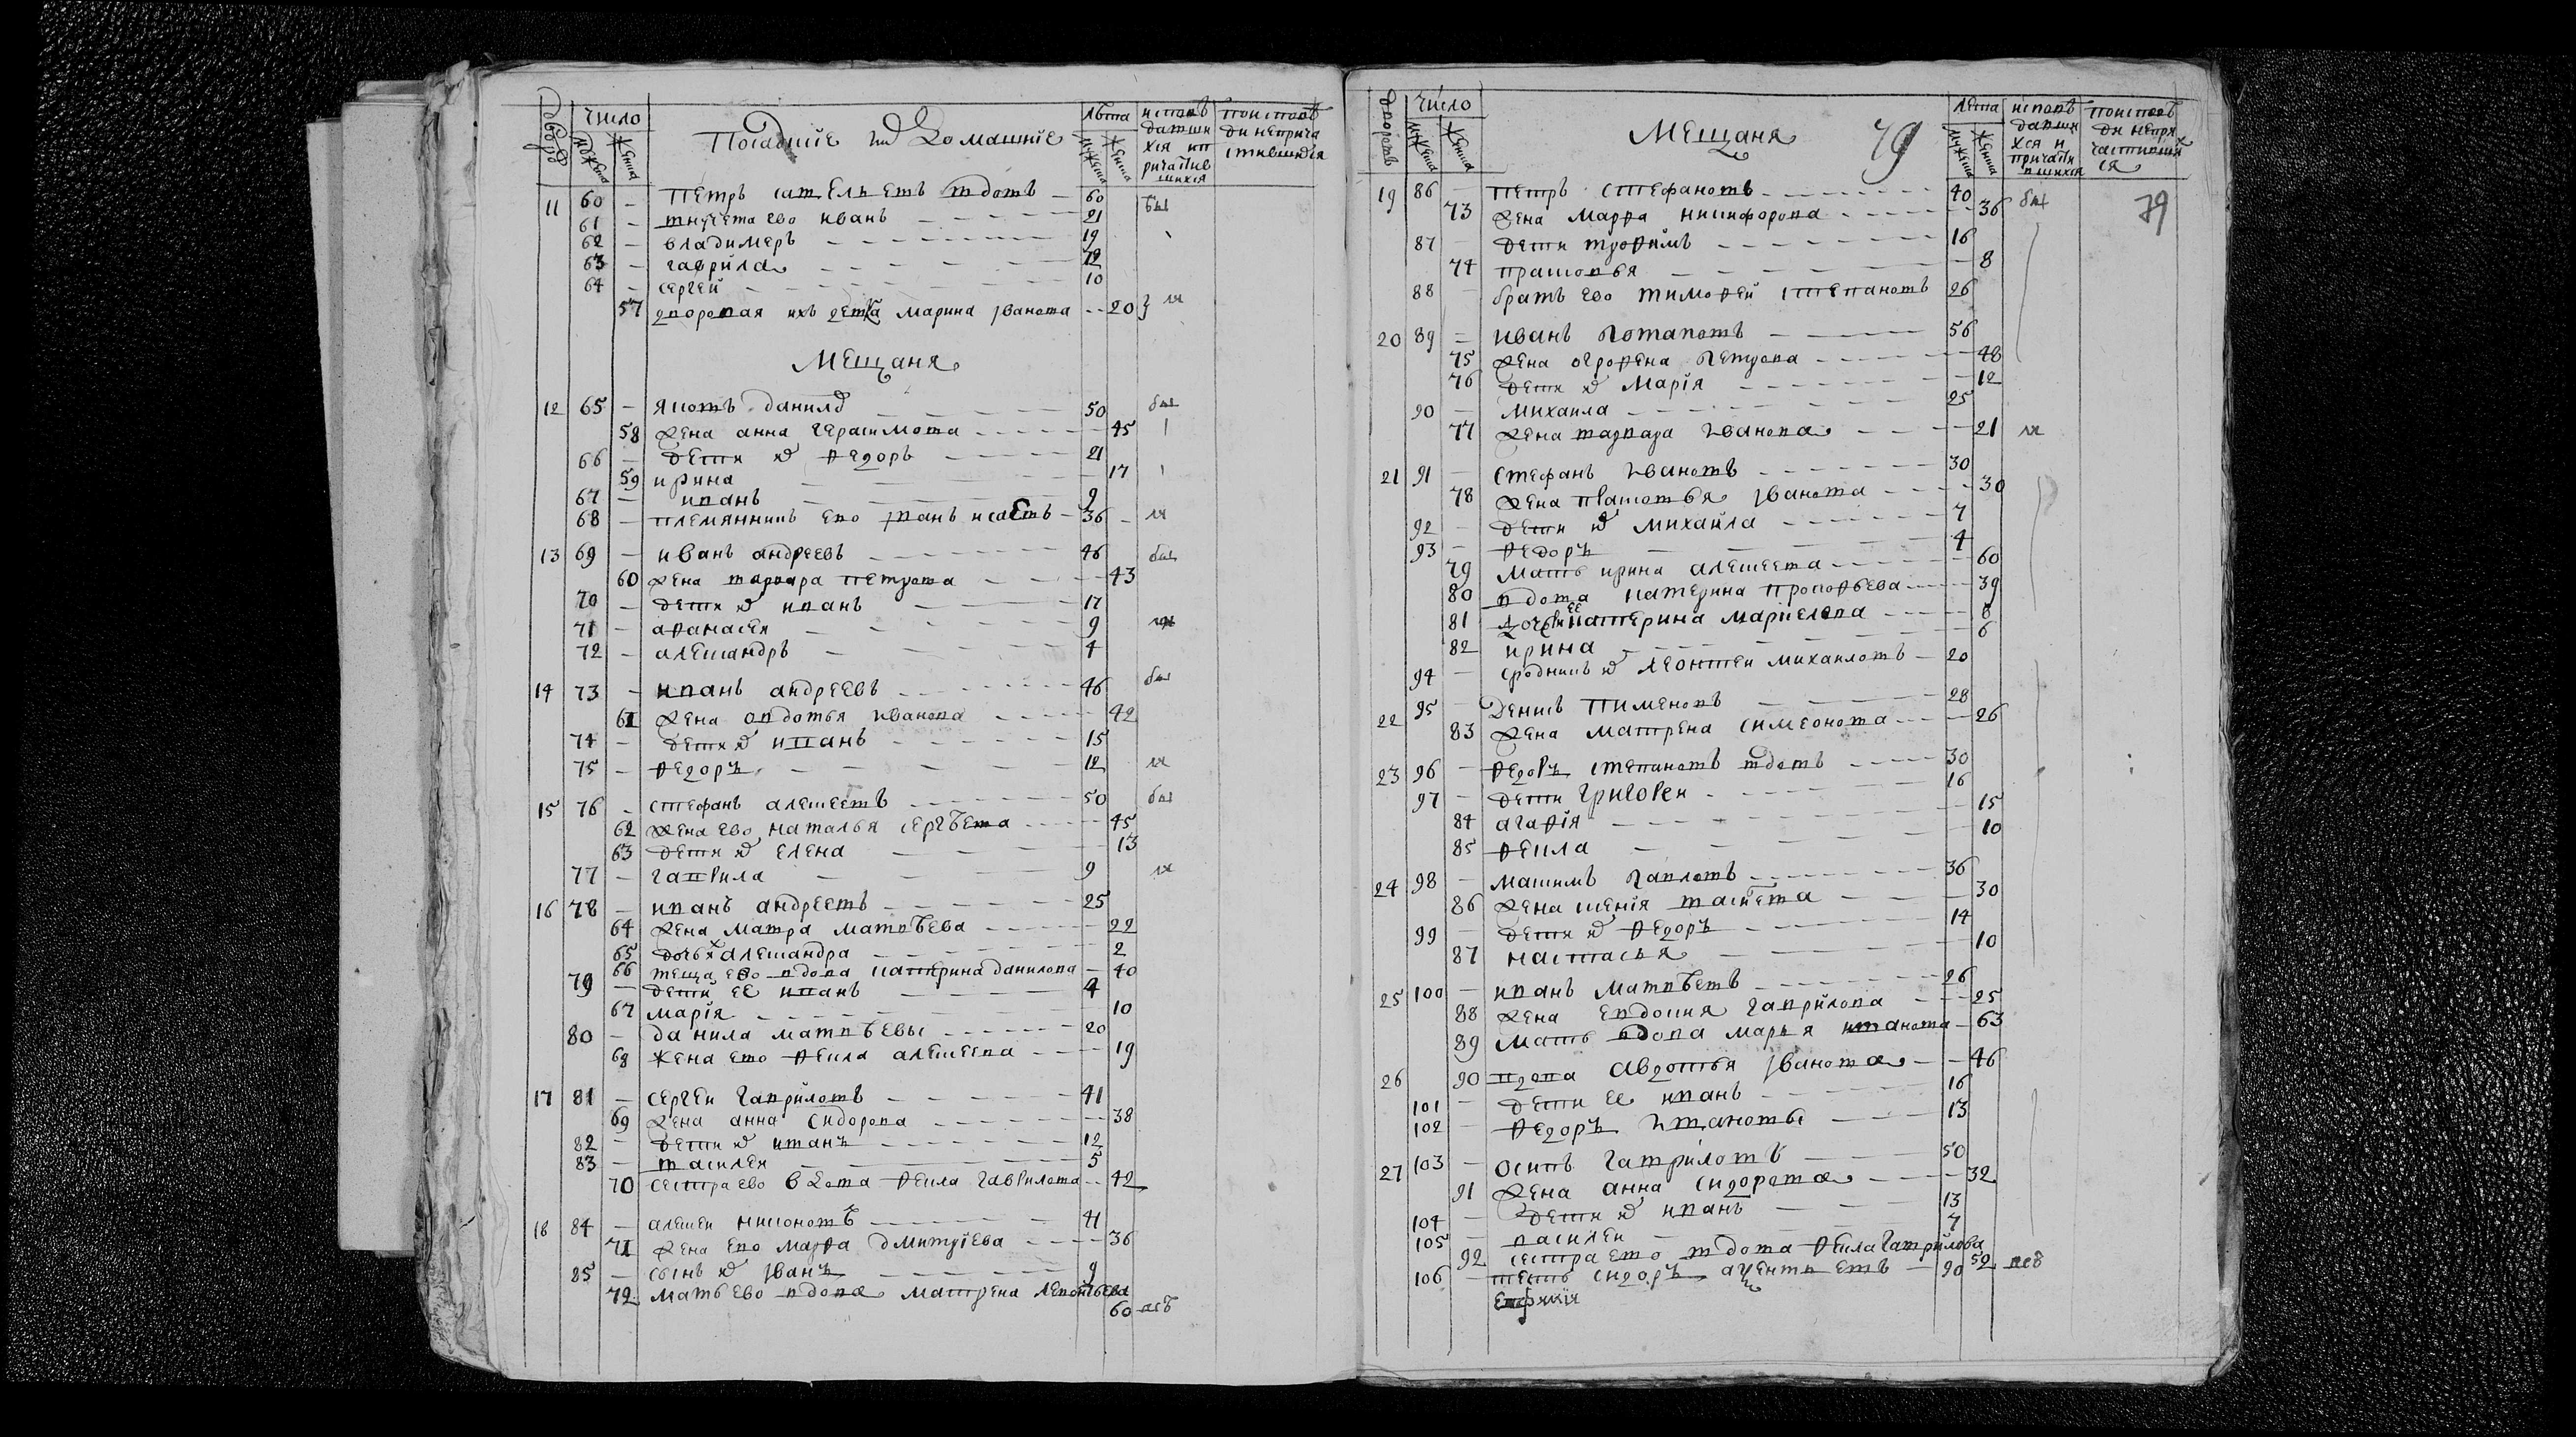 число
Посадскїе их домашнїе
лѣта
мужеска
женска
исповѣ
давши
хся и п
ричастив
шихся
по исповѣ
ди неприча
стившихся
11 60 – Петръ савельевъ вдовъ – 60 бы
61 – внучета ево иванъ – 21
62 – владимеръ – 19
63 – гаврила – 12
64 – сергей – 10
57 дворовая ихъ девка марина иванова – 20 ли
Мещаня
12 65 – яковъ данилов 50 бы
58 жена анна герасимова – 45
66 – дети их федоръ – 21
59 ирина – 17
67 – иванъ – 9
68 – племянникъ ево иванъ исаевъ – 36 – ли
13 69 – иванъ андреевъ – 46 бы
60 жена варвара петрова – 43
70 – дети их иванъ – 17
71 – афанасеи – 9 ли
72 – александръ – 4
14 73 – иванъ андреевъ – 46 бы
61 жена авдотья иванова – 42
74 – дети их иванъ – 15
75 – федоръ – 12 ли
15 76 – стефанъ алексеевъ – 50 бы
62 жена ево наталья сергѣева – 45
63 дети их елена – 13
77 – гаврила – 9 ли
16 78 – иванъ андреевъ – 25
64 жена мавра матвѣева – 22
65 дочь их александра – 2
66 теща ево вдова катерина данилова – 40
79 – дети ее иванъ – 4
67 марїя – 10
80 – данила матвѣевы – 20
68 жена ево фекла алексеева – 19
17 81 – сергеи гавриловъ – 41
69 жена анна сидорова – 38
82 – дети их иванъ – 12
83 – василеи – 5
70 сестра ево вдова фекла гаврилова – 42
18 84 – алексеи никоновъ – 41
71 жена ево марфа дмитрїева – 36
85 – сынъ их иванъ – 9
72 мать ево вдова матрена леонтьева
60
число
мужеска
женска
Мещаня 79
лета
мужеска
женска
исповѣ
давши
хся и
причасти
вшихся
по исповѣ
ди непри
частивших
ся
79
19 86 – петръ стефановъ – 40 бы
73 жена марфа никифорова – 36
87 – дети трофимъ – 16
74 прасковья – 8
88 – братъ ево тимофеи степановъ 26
20 89 – иванъ потаповъ – 56
75 жена огрофена петрова – 48
76 дети их марїя – 12
90 – михаила – 25
77 жена варвара иванова – 21 ли
21 91 – стефанъ ивановъ – 30
78 жена прасковья иванова – 30
92 – дети их михаила – 7
93 – федоръ – 4
79 мать ирина алексеева – 60
80 вдова катерина прокофьева – 39
81 дочери ее катерина маркелова – 8
82 ирина – 6
94 – сродникъ их леонтеи михаиловъ – 20
22 95 – денисъ пименовъ – 28
83 жена матрена симеонова – 26
23 96 – федоръ степановъ вдовъ – 30
97 – дети григореи – 16
84 агафїя – 15
85 фекла – 10
24 98 – максимъ павловъ – 36
86 жена ксенїя – 30
99 – дети их федоръ – 14
87 настасья – 10
25 100 – иванъ матвѣевъ – 26
88 жена евдокия гаврилова – 25
89 мать вдова марья иванова – 63
26 90 вдова авдотья иванова – 46
101 – дети ее иванъ – 16
102 – федоръ ивановы – 13
27 103 – осипъ гавриловъ – 50
91 жена анна сидорова – 32
104 – дети их иванъ – 13
105 – василеи – 7
92 сестра ево вдова фекла гаврилова 52
106 – тесть сидоръ – 90